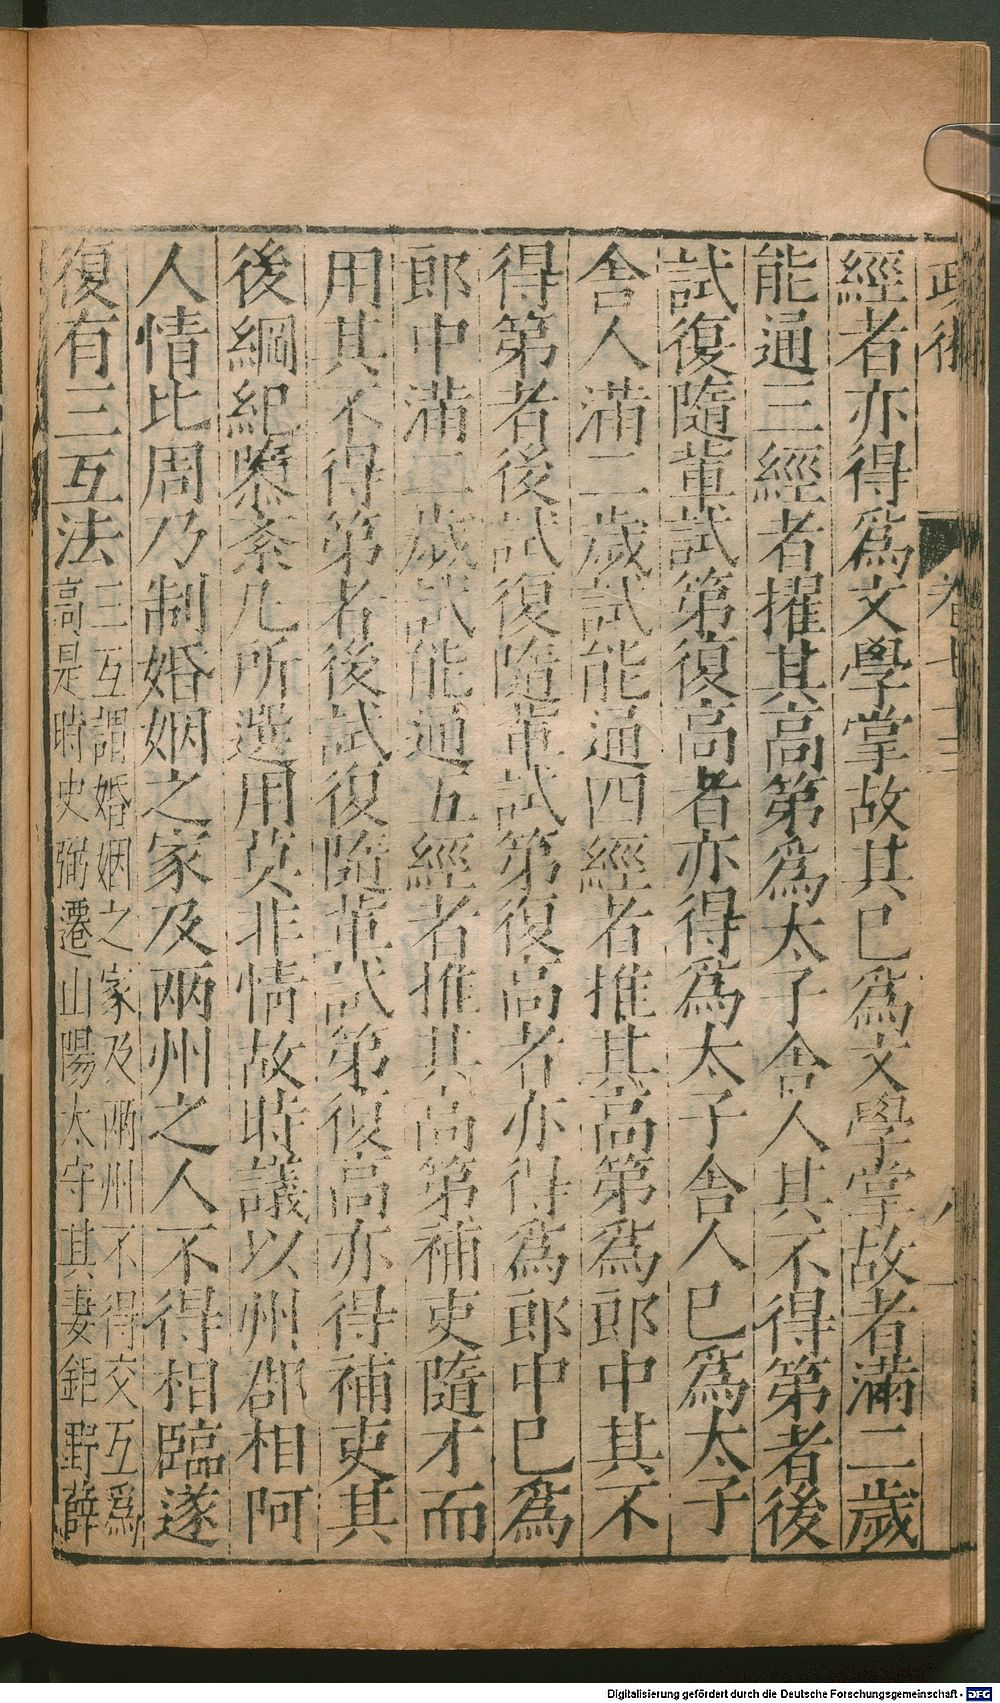 經者亦得爲文學掌故其已爲文學掌故者滿二歲
能通三經者擢其高第爲太子舍人其不得第者後
試復隨輩試第復高者亦得爲太子舍人已爲太子
舍人滿二歲試能通四經者推其高第爲郎中其不
得第者後試復隨輩試第復高者亦得爲郎中已爲
郎中滿二歲試能通五經者推其高第補吏隨才而
用其不得第者後試復隨輩試第復高亦得補吏其
後綱紀隳紊凡所選用莫非情故時議以州郡相阿
人情比周乃制婚姻之家及兩州之人不得相臨遂
復有三互法
三互謂婚姻之家及兩州不得交互爲
高是時史弼遷山陽太守其妻鉅野薛
Digitalisierung gefördert durch die Deutsche Forschungsgemeinschaft - DFG